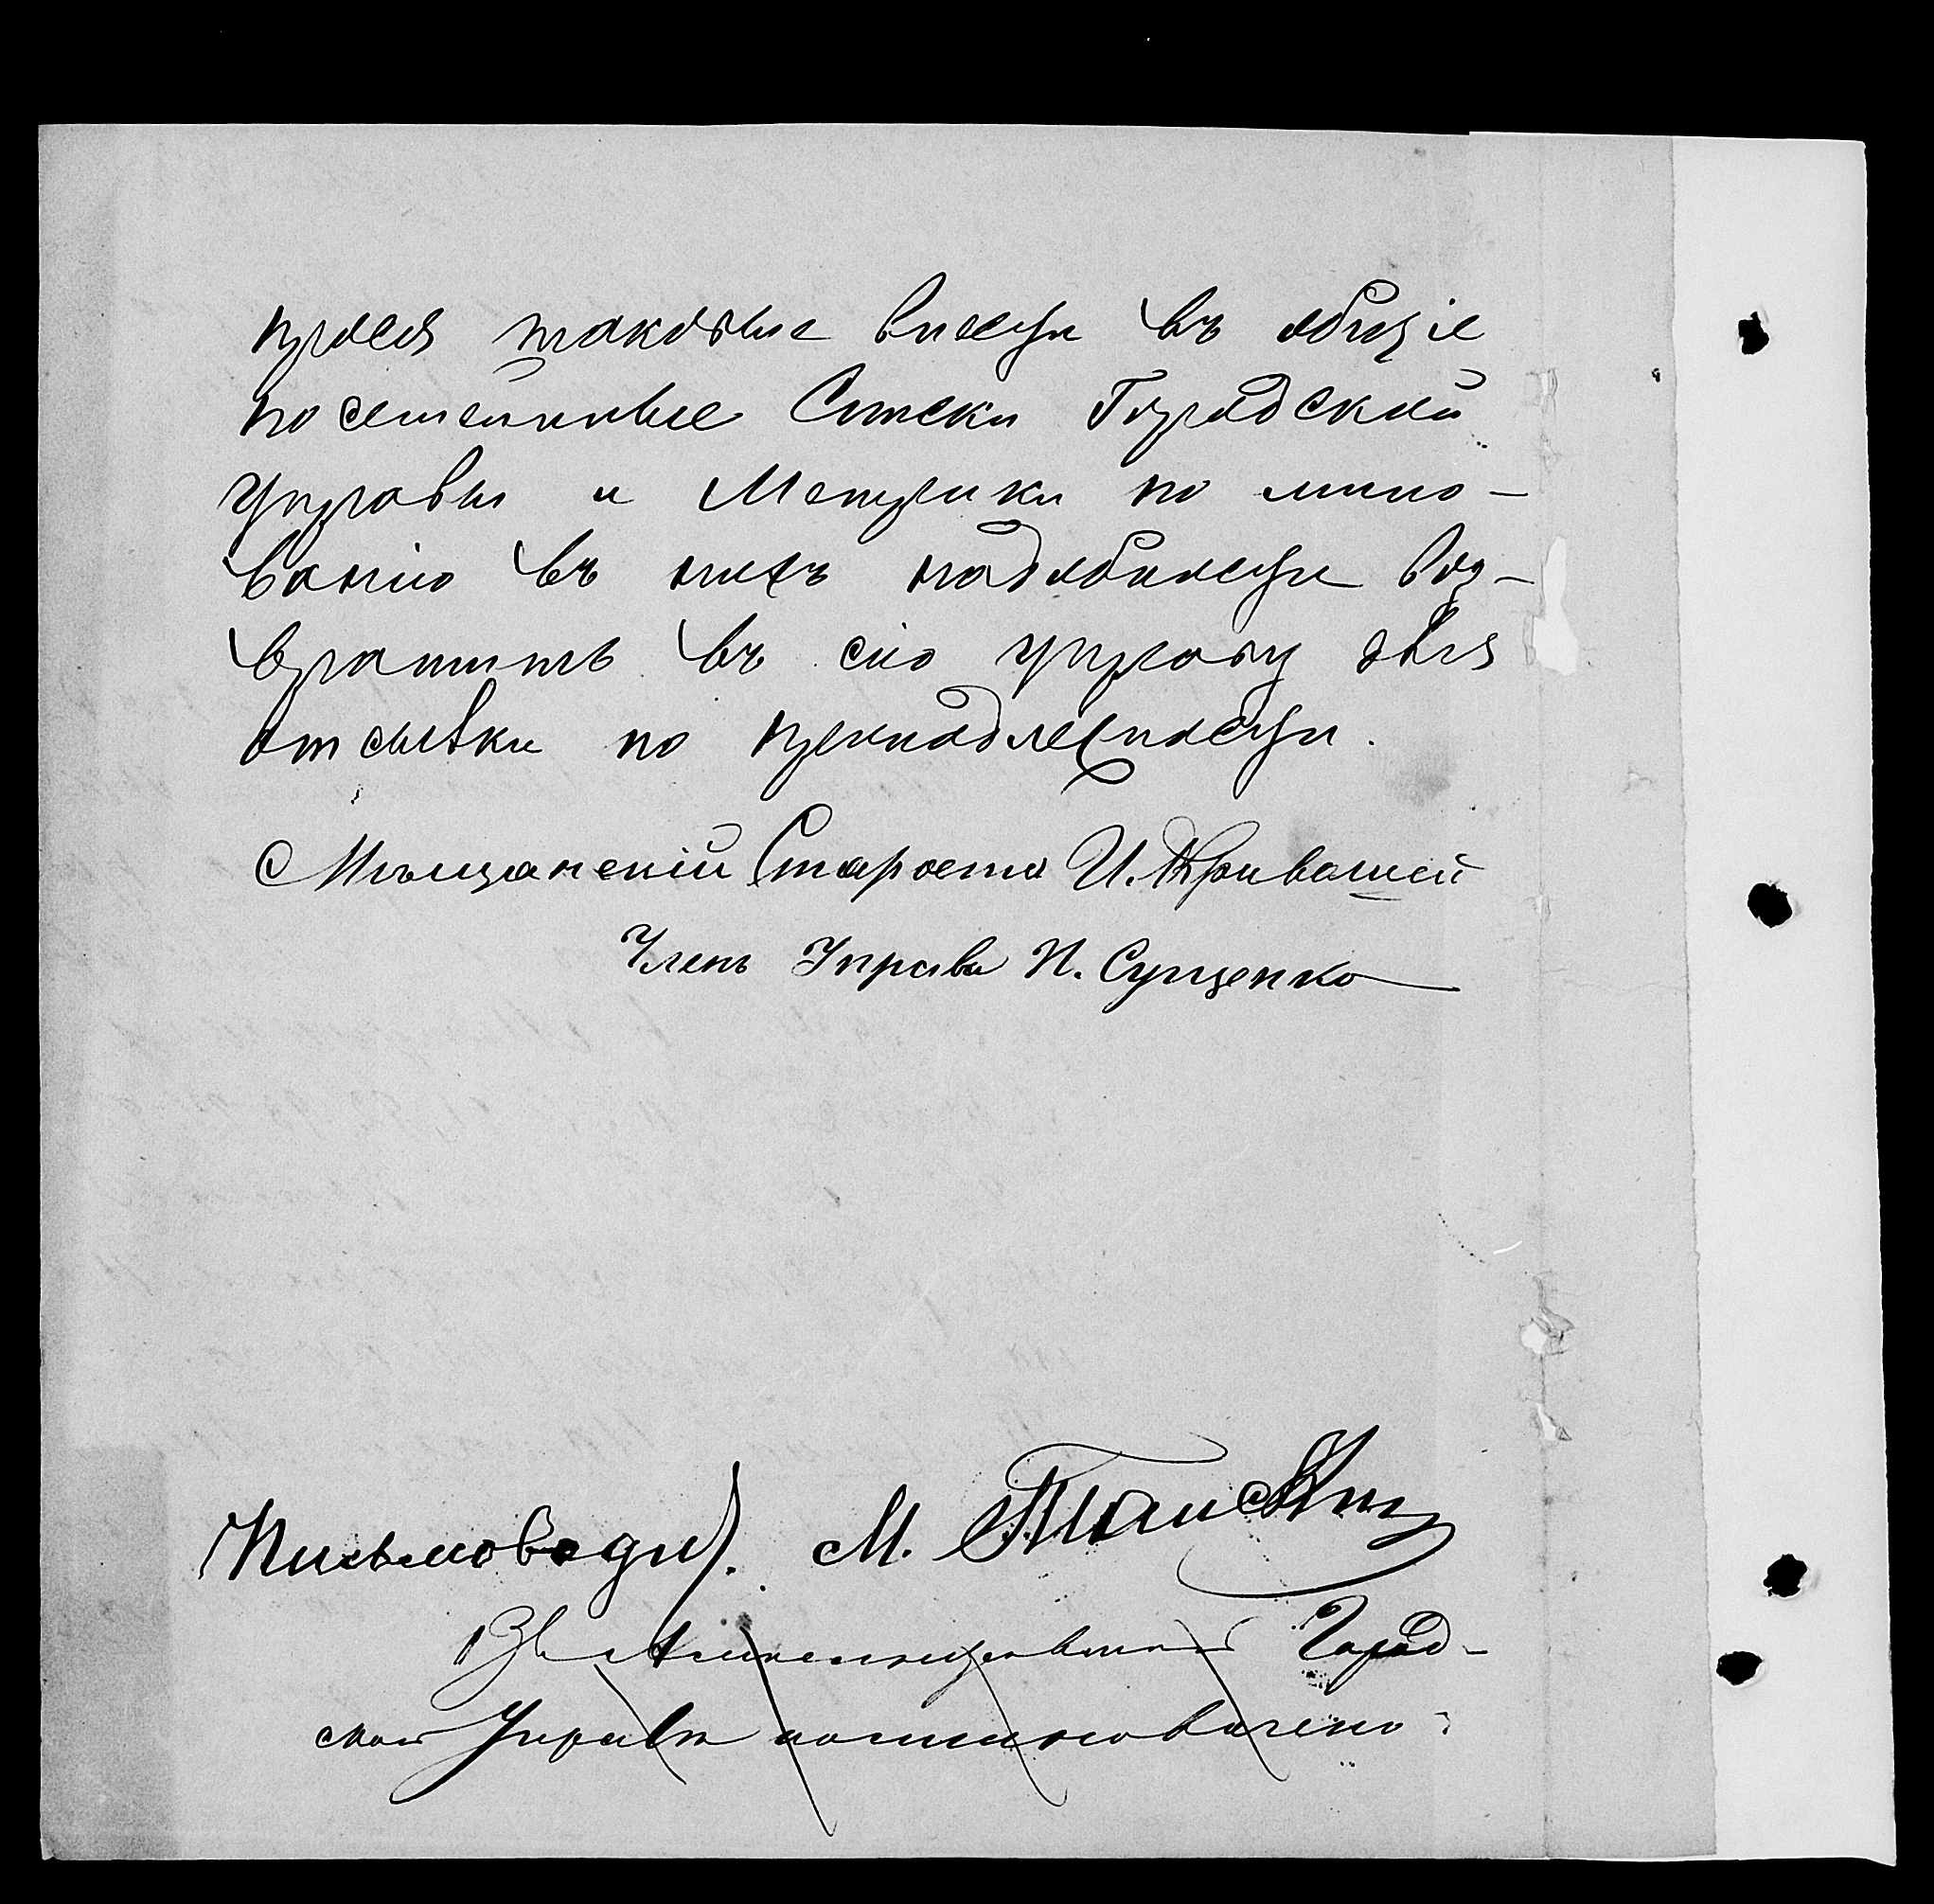 прося таковые внести въ общіе
посемейные Списки Городской
управы и Метрики по мино-
ванію въ нихъ надобности воз-
вратить въ сію управу для
отсылки по принадлежности.
Мѣщанскій Староста И. Кривошей
Членъ Управы И. Сущенко
Письмоводи). М.
Город-
ской Управѣ